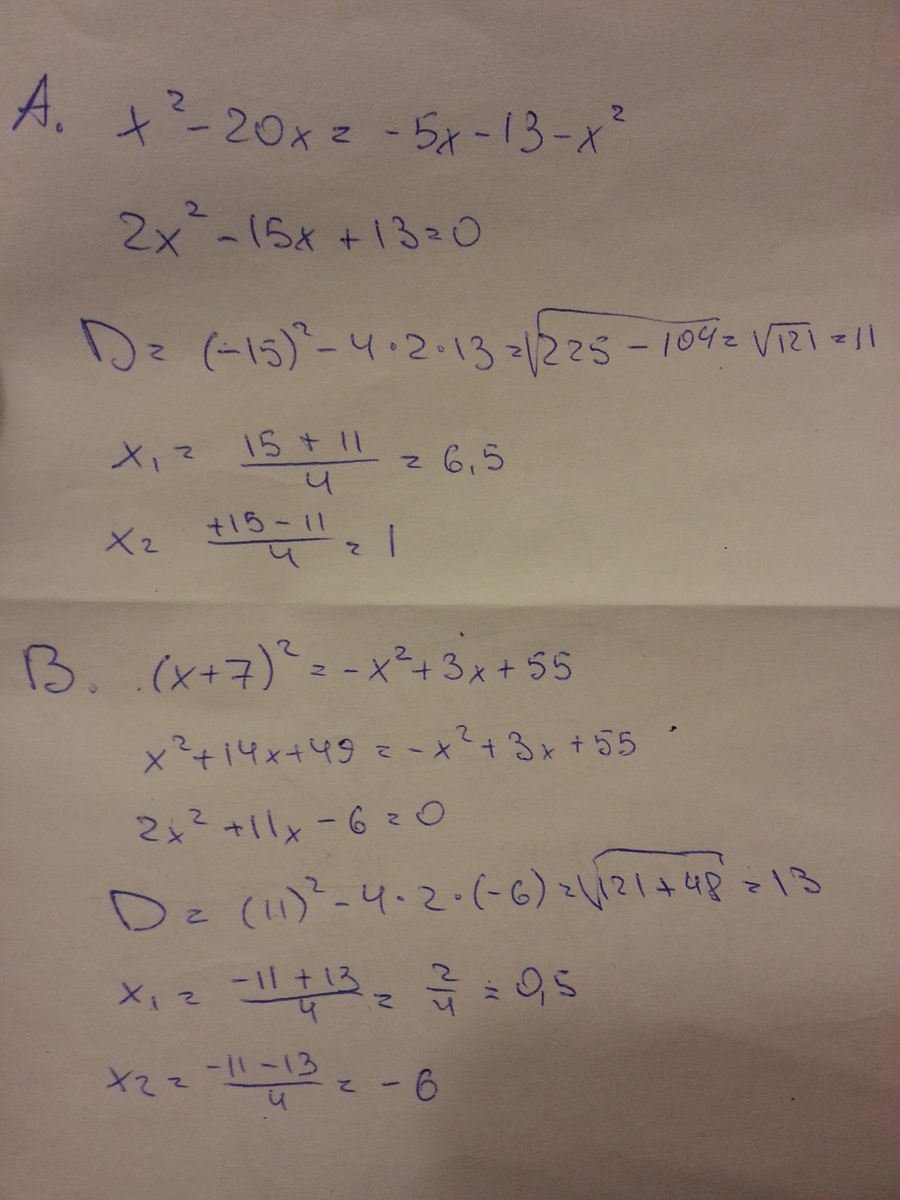 A. x² - 20x = -5x - 13 - x²
2x² - 15x + 13 = 0
D = (-15)² - 4·2·13 = √225 - 104 = √121 = 11
x₁ = (15 + 11)/4 = 6,5
x₂ (+15 - 11)/4 = 1
B. (x+7)² = -x² + 3x + 55
x² + 14x + 49 = -x² + 3x + 55
2x² + 11x - 6 = 0
D = (11)² - 4·2·(-6) = √121 + 48 = 13
x₁ = (-11 + 13)/4 = 2/4 = 0,5
x₂ = (-11 - 13)/4 = -6